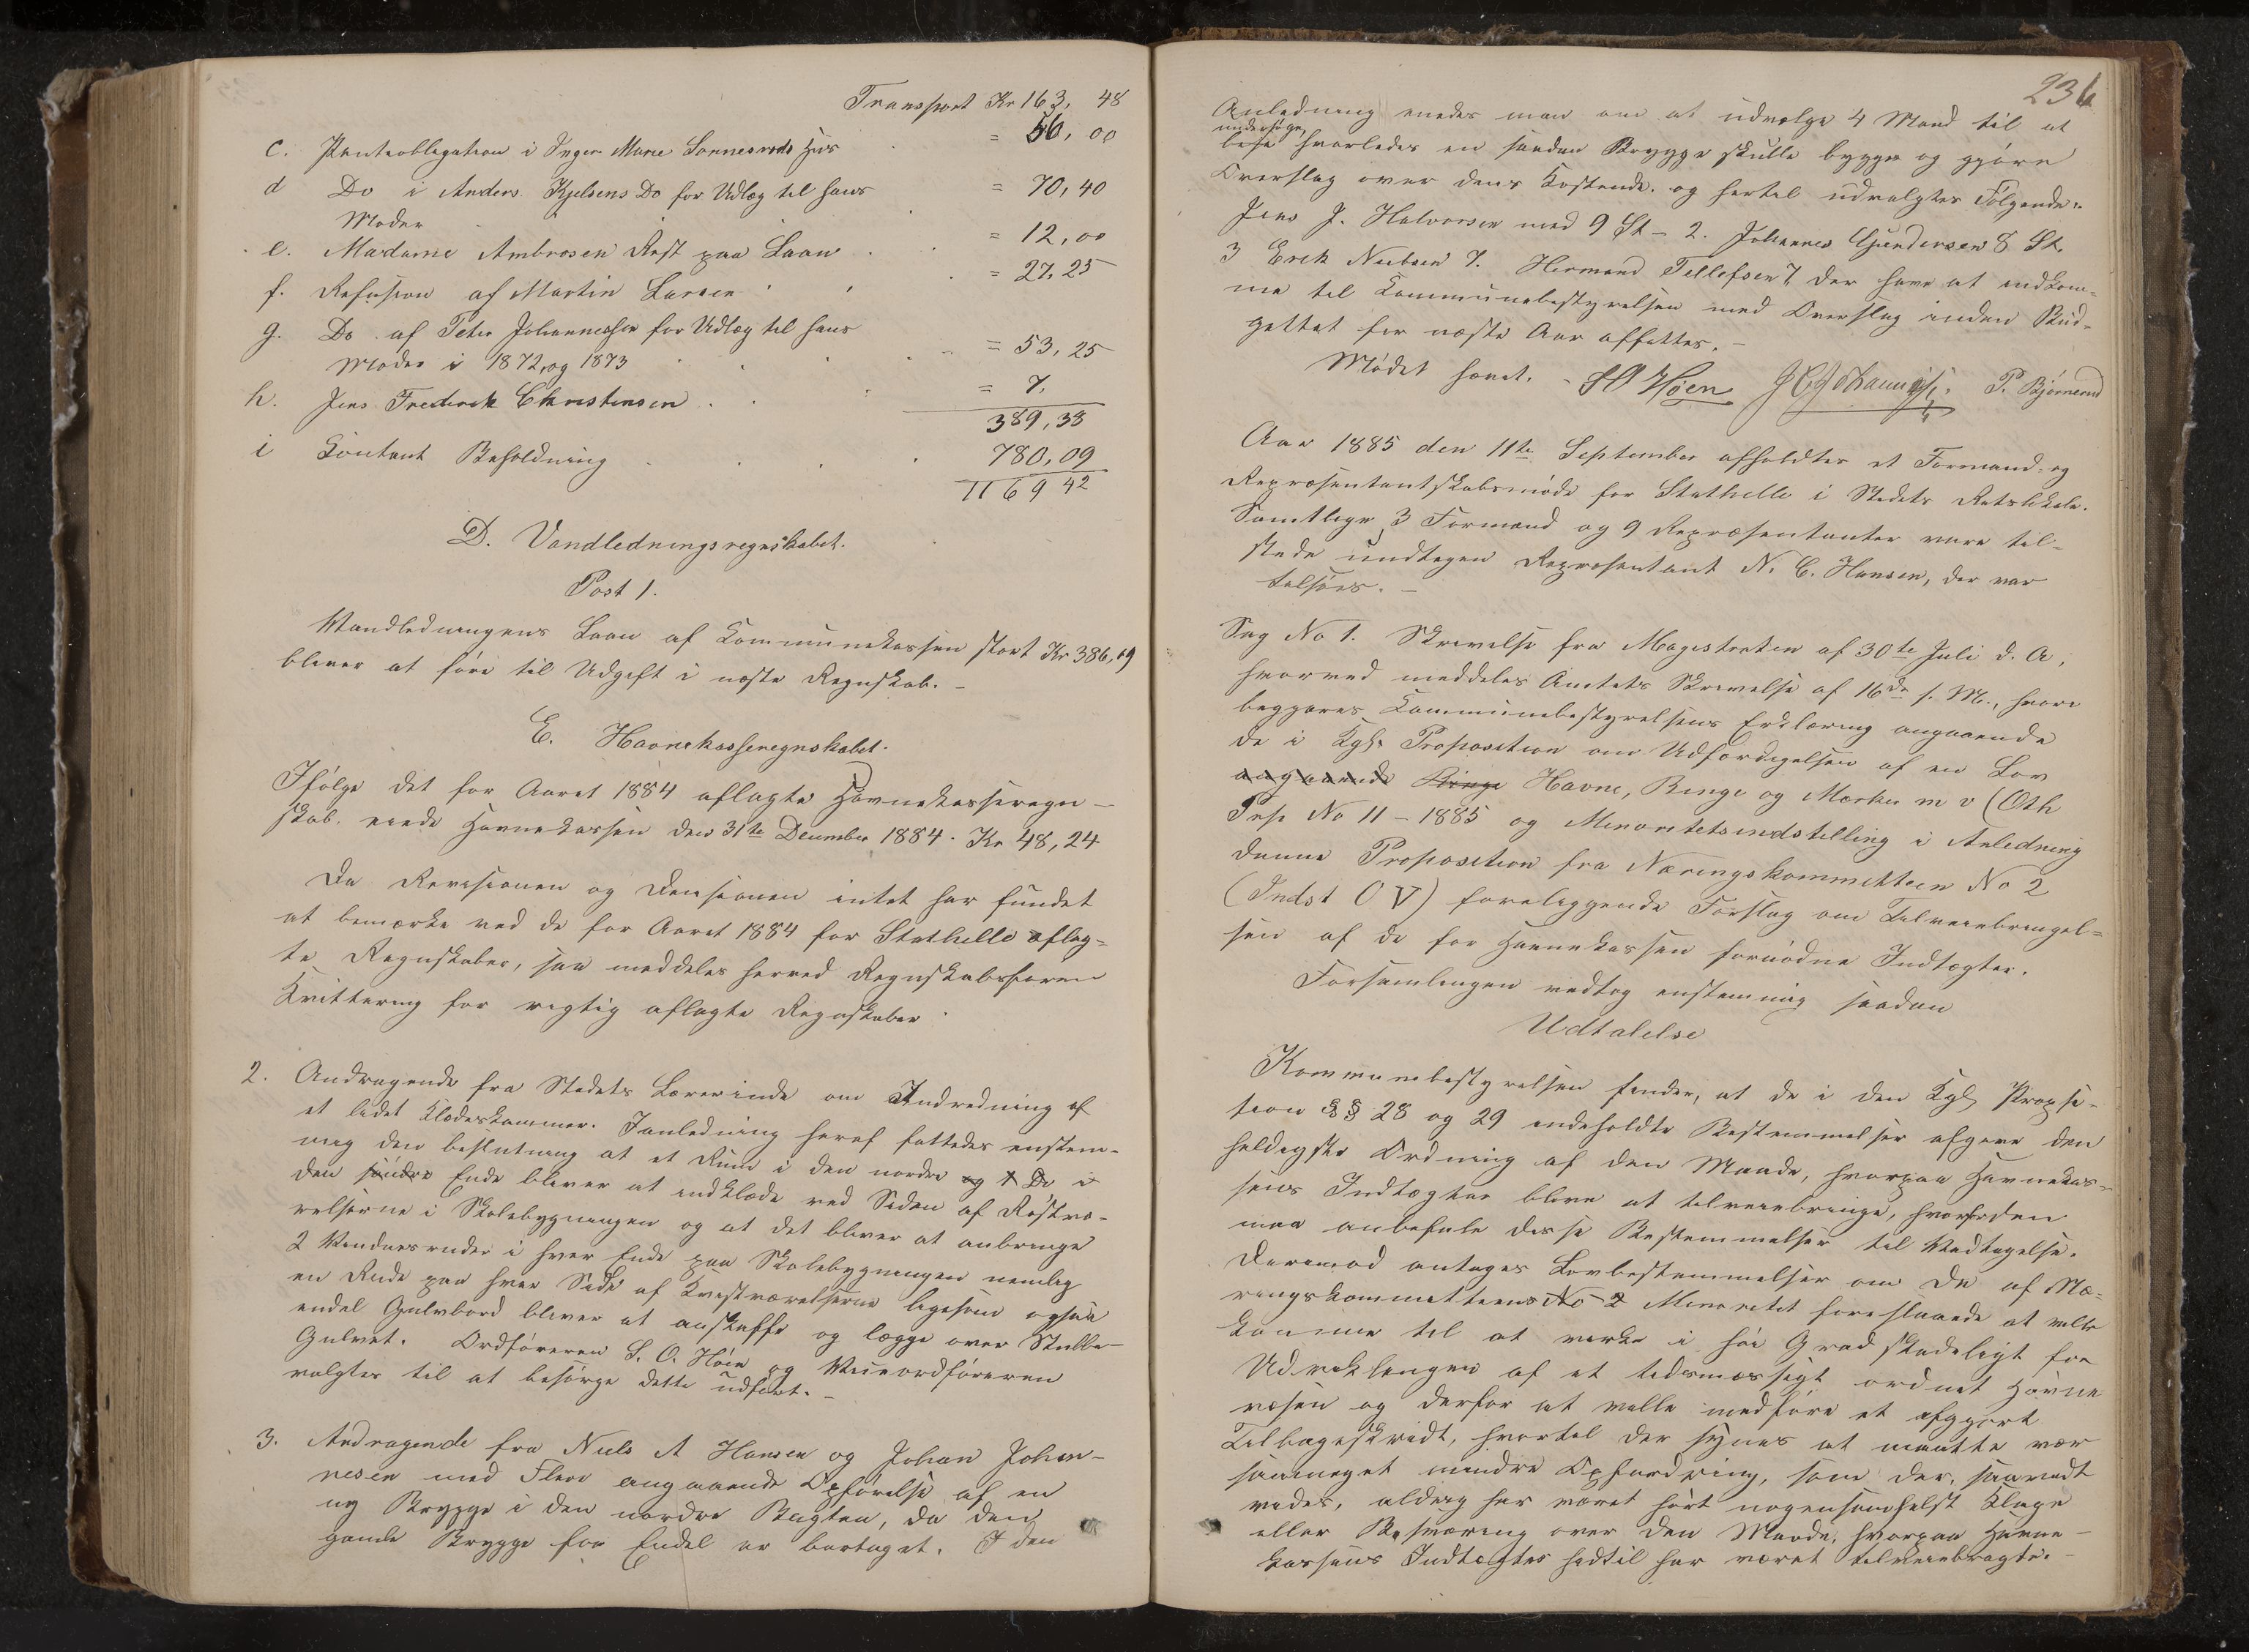 Transport Kr 163, 48
c. Panteobligation i Inger Marie Sannesrøds Hus = 56, 00
d Do i Anders Kjelsens Do for Udlæg til hans
Moder = 70, 40
e. Madame Ambrosen Rest paa Laan = 12, 00
f. Refusion af Martin Larsen = 27. 25
g. Do. af Peter Johannessen for Udlæg til hans
Moder i 1872 og 1873 = 53, 25
h. Jens Frederik Christensen = 7.
389, 38
i Contant Beholdning 780, 09
1169 42
D. Vandledningsregnskabet.
Post 1.
Vandledningens Laan af Kommunekassen stort Kr 386,09
bliver at føre til Udgift i næste Regnskab. –
E. Havnekasseregnskabet.
Ifølge det for Aaret 1884 aflagte Havnekasseregn–
skab eiede Havnekassen den 31te December 1884. Kr 48, 24
Da Revisionen og Decisionen intet har fundet
at bemærke ved de for Aaret 1884 for Stathelle aflag=
te Regnskaber, saa meddeles herved Regnskabsføreren
Kvittering for rigtig aflagte Regnskaber
2. Andragende fra Stedets Lærerinde om Indredning af
et lidet Klædeskammer. I Anledning heraf fattedes enstem-
mig den beslutning at et Rum i den nordre og 1 Do i
den søndre Ende bliver at indklæde ved Siden af
velserne i Skolebygningen og at det bliver at anbringe
2 Vinduesruder i hver Ende paa Skolebygningen nemlig
en Rude paa hver Side af Kvistværelserne ligesom ogsaa
endel Gulvbord bliver at anskaffe og lægge over Stubbe–
Gulvet. Ordføreren S. O. Høen og Viceordføreren
valgtes til at besørge dette udført. –
3. Andragende fra Niels A Hansen og Johan Johan–
nesen med Flere angaaende Opførelse af en
ny Brygge i den nordre Bugten, da den
gamle Brygge for Endel er borttaget. I den
236
Anledning enedes man om at udvælge 4 Mand til at
undersøge,
hvorledes en saadan Brygge skulle bygges og gjøre
Overslag over dens Kostende. og hertil udvalgtes Følgende:
Jens J. Halvorsen med 9 St – 2. Johannes Gundersen 8 St.
3 Erik Nielsen 7. Hermand Tellefsen 7, der have at indkom-
me til Kommunebestyrelsen med Overslag inden Bud-
gettet for næste Aar affattes. –
Mødet hævet. – S O Høen P. Bjørnerud
Aar 1885 den 11te September afholdtes et Formand- og
Repræsentantskabsmøde for Stathelle i Stedets Retslokale.
Samtlige 3 Formænd og 9 Repræsentanter vare til-
stede undtagen Repræsentant N. C. Hansen, der var
tilsøes. –
Sag No 1. Skrivelse fra Magistraten af 30te Juli d. A,
hvorved meddeles Amtets Skrivelse af 16de s. M., hvori
begjæres Kommunebestyrelsens Erklæring angaaende
de i Kgl. Proposition om Udfærdigelsen af en Lov
angaaende Ringe Havne, Ringe og Mærker m v (Oth
Prp No 11 – 1885 og Minoritetsindstilling i Anledning
denne Proposition fra Næringskommitteen No 2
(Indst O V) foreliggende Forslag om Tilveiebringel=
sen af de for Havnekassen fornødne Indtægter.
Forsamlingen vedtog enstemmig saadan
Udtalelse
Kommunebestyrelsen finder, at de i den Kgl Propsi-
tion §§ 28 og 29 indeholdte Bestemmelser afgive den
heldigste Ordning af den Maade, hvorpaa Havnekas=
sens Indtægter blive at tilveiebringe, hvorfor den
maa anbefale disse Bestemmelser til Vedtagelse.
Derimod antages Lovbestemmelser om de af Næ=
ringskommitteens No 2 Minoritet foreslaaede at ville
komme til at virke i høi Grad skadeligt for
Udviklingen af et tidsmæssigt ordnet Havne
væsen og derfor at ville medføre et afgjort
Tilbageskridt, hvortil der synes at maatte vær
saameget mindre Opfordring, som der, saavidt
vides, aldrig har været hørt nogensomhelst Klage
eller Besværing over den Maade, hvorpaa Havne–
kassens Indtægter hidtil har været tilveiebragte. –